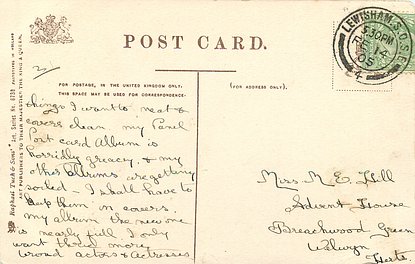 POST CARD.
FOR POSTAGE, IN THE UNITED KINGDOM ONLY,
THIS SPACE MAY BE USED FOR CORRESPONDENCE.
(FOR ADDRESS ONLY)
LEWISHAM S.O. S.E.
5.30 PM
14
05
4
Raphael Tuck & Sons' "Art" Series No. 6739
ART PUBLISHERS TO THEIR MAJESTIES THE KING & QUEEN.
things I want to neat &
covers clean my Panel
Post card Album is
horridly greacy, & my
other albums are getting
soiled – I shall have to
keep them in covers.
my album the new one
is nearly full I only
want three more
actors & actresses
Mrs. M. E. Hill
Advent House
Breachwood Green
Welwyn
Herts